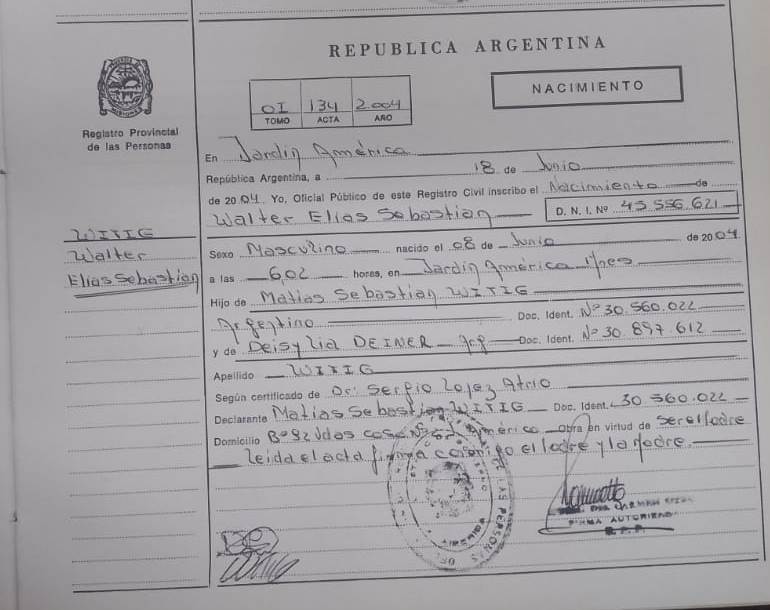 REPUBLICA ARGENTINA
NACIMIENTO
OI 134 2.004
TOMO ACTA AÑO
Registro Provincial
de las Personas
En Jardín América
República Argentina, a 18 de Junio
de 2004. Yo, Oficial Público de este Registro Civil inscribo el Nacimiento de
Walter Elías Sebastián D. N. I. Nº 45 556 621
WITTIG
Walter
Elías Sebastián
Sexo Masculino nacido el 08 de Junio de 2004
a las 6,02 horas, en Jardín América
Hijo de Matías Sebastián WITTIG
Argentino Doc. Ident. Nº 30.560.022
y de Deisy Lia DEINER Arg Doc. Ident. Nº 30 897 612
Apellido WITTIG
Según certificado de Dr. Sergio López
Declarante Matías Sebastián WITTIG Doc. Ident. 30 560.022
Domicilio América Obra en virtud de ser el Padre
leída el acta firma conmigo el Padre y la Madre.
DE LAS PERSONAS
FIRMA AUTORIZADA
R.P.P.